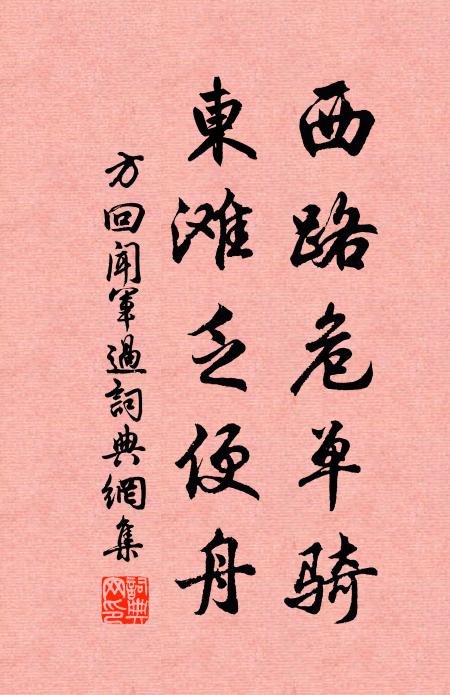 西路危单骑
東滩乏便舟
方回闻軍過詞典網集
詞典网印